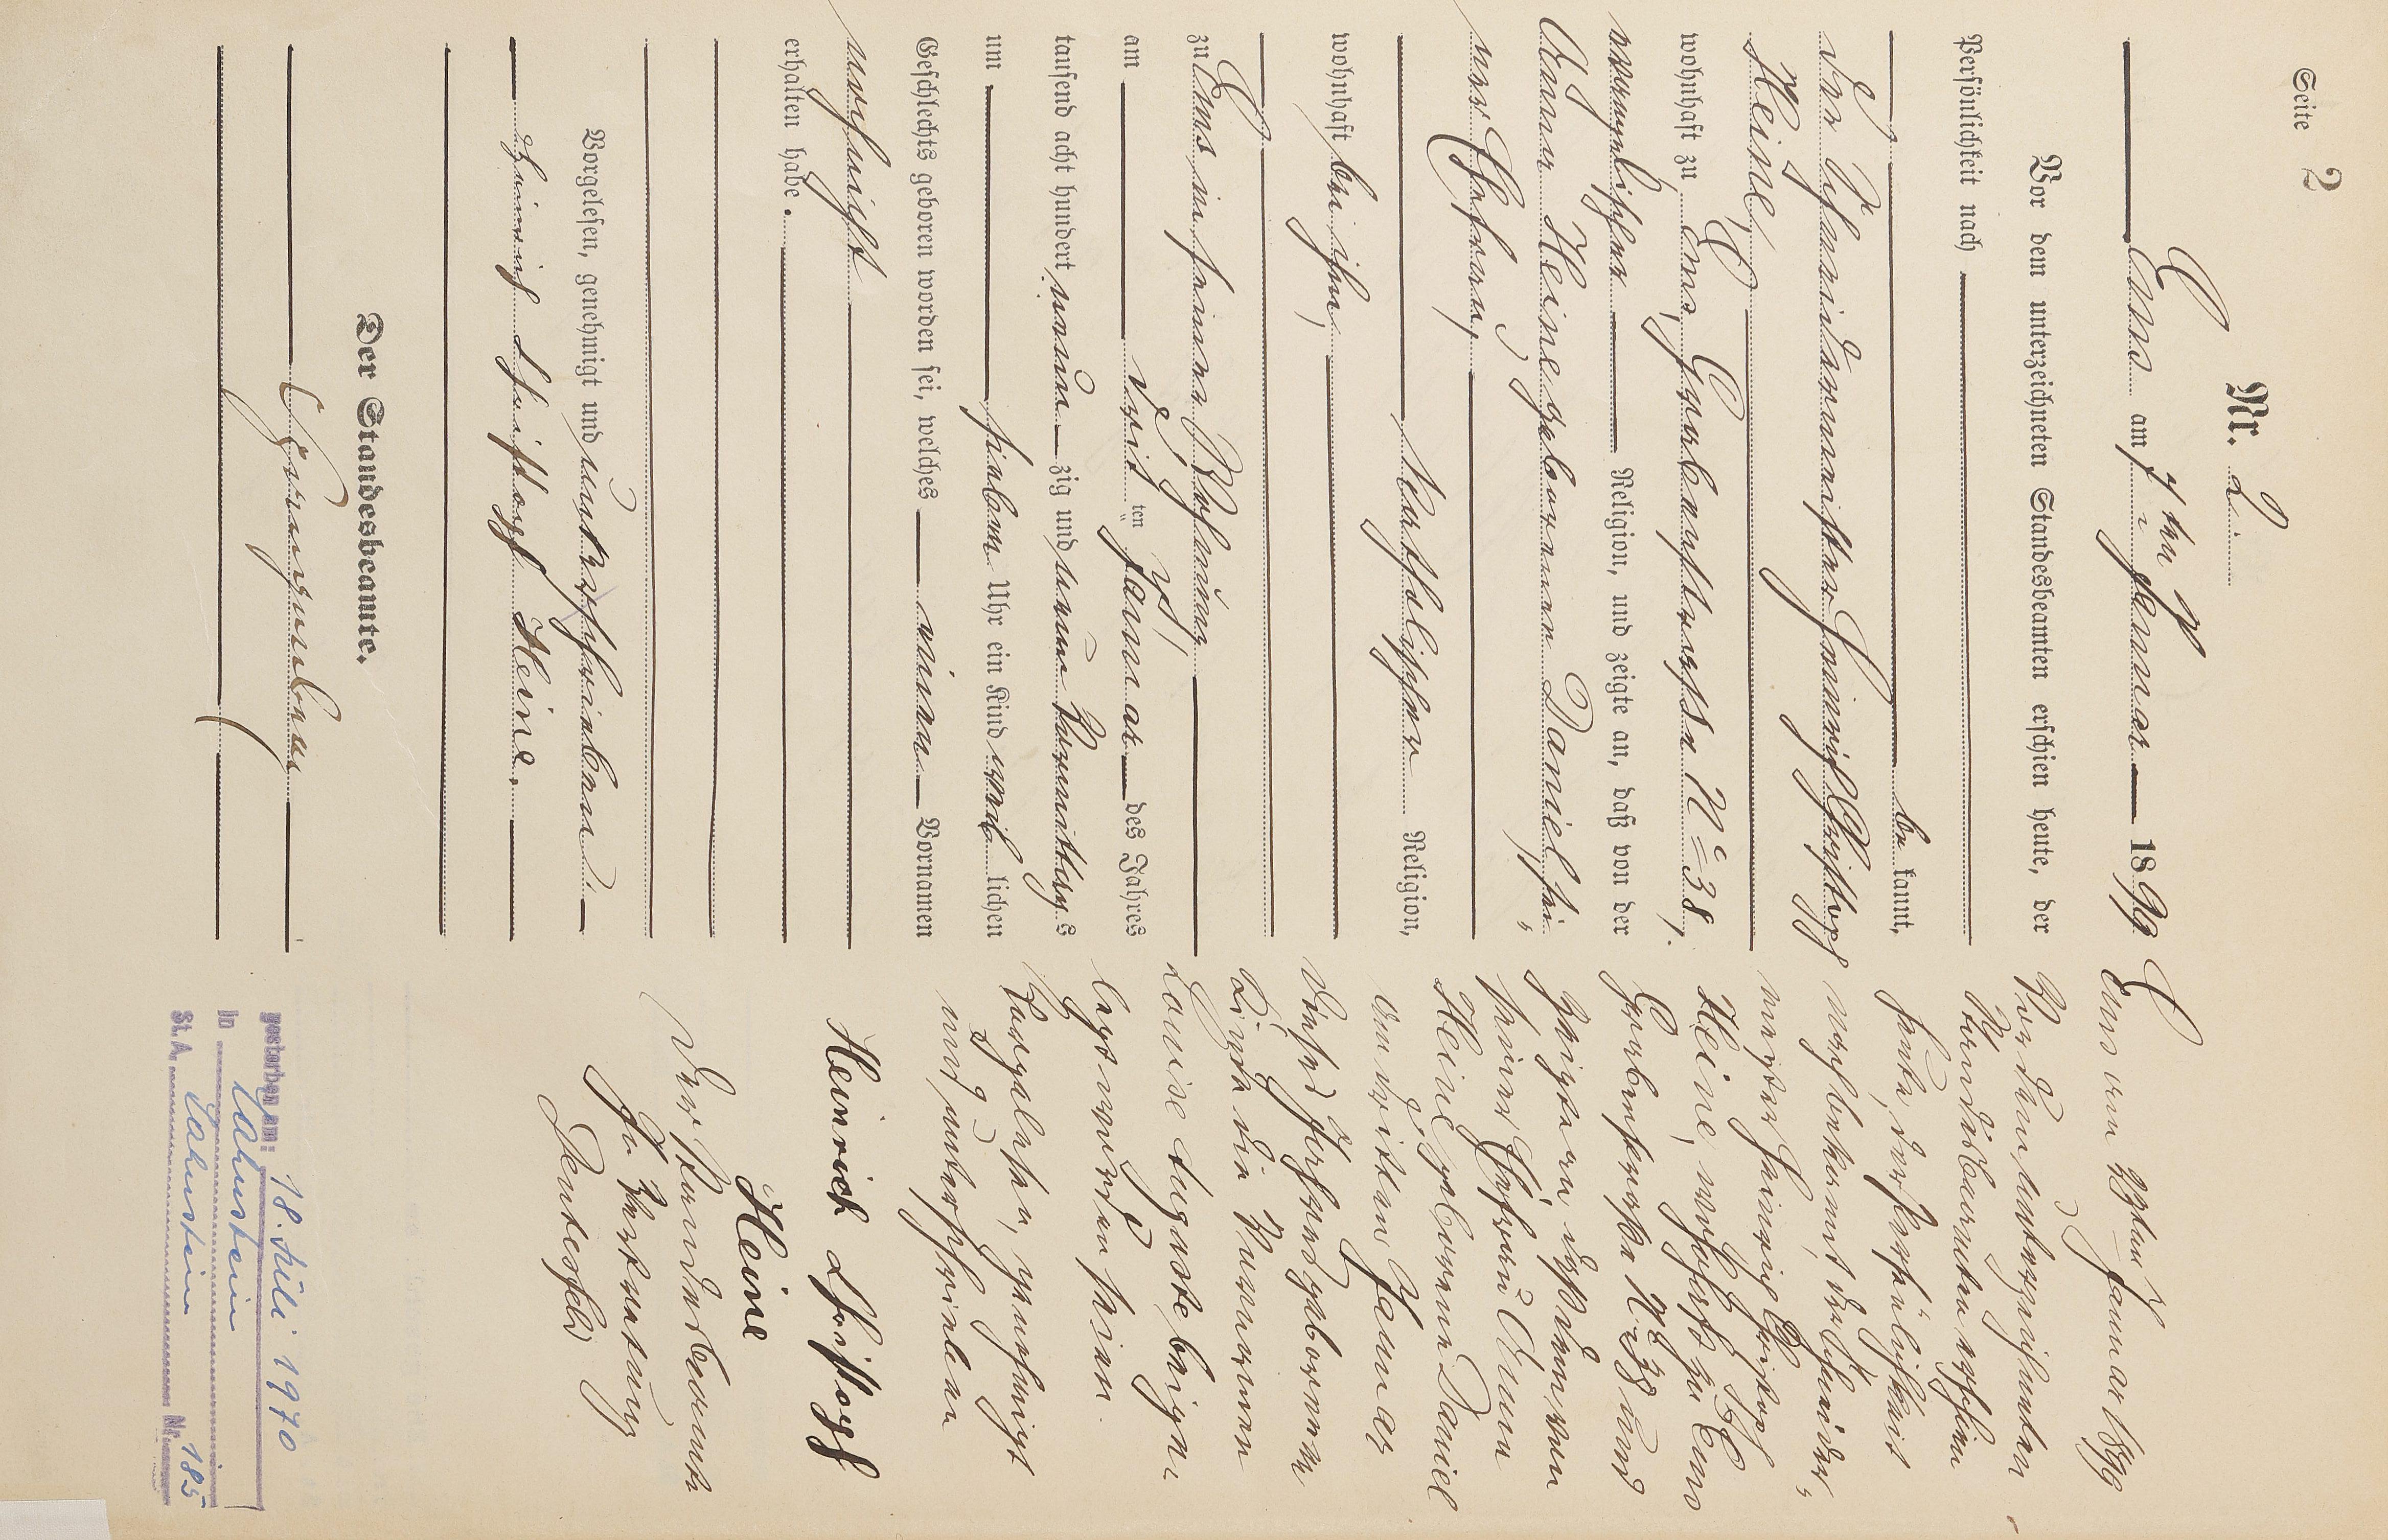 Seite 2
Nr. 2.
Ems am 7ten Januar 1899
Vor dem unterzeichneten Standesbeamten erschien heute, der
Persönlichkeit nach
be kannt,
der Schneidermeister Heinrich Christoph
Heine,
wohnhaft zu Ems, Grabenstraße No 38,
evangelischer Religion, und zeigte an, daß von der
Anna Heine geborenen Daniel sei-
ner Ehefrau,
katholischer Religion,
wohnhaft bei ihm,
zu Ems in seiner Wohnung
am drei ten Januar des Jahres
tausend acht hundert neun zig und neun Vormittags
um sieben Uhr ein Kind weib lichen
Geschlechts geboren worden sei, welches einen Vornamen
noch nicht
erhalten habe.
Vorgelesen, genehmigt und unterschrieben
Heinrich Christoph Heine.
Der Standesbeamte.
Ems am Januar 1899
Vor dem unterzeichneten
Standesbeamten erschien
heute, der Persönlichkeit
nach bekannt, der Schneider-
meister Heinrich Christoph
Heine, wohnhaft zu Ems
Grabenstraße No 38 und
zeigte an, daß dem von
seiner Ehefrau Anna
Heine geborene Daniel
am dritten Januar
dieses Jahres geborenen
Kinde die Vornamen
Louise Auguste beige-
legt worden seien.
Vorgelesen, genehmigt
und unterschrieben
Heinrich Christoph
Heine
Der Standesbeamte
In Vertretung
gestorben am: 18. Juli 1970
in Lahnstein
St.A. Lahnstein Nr. 185